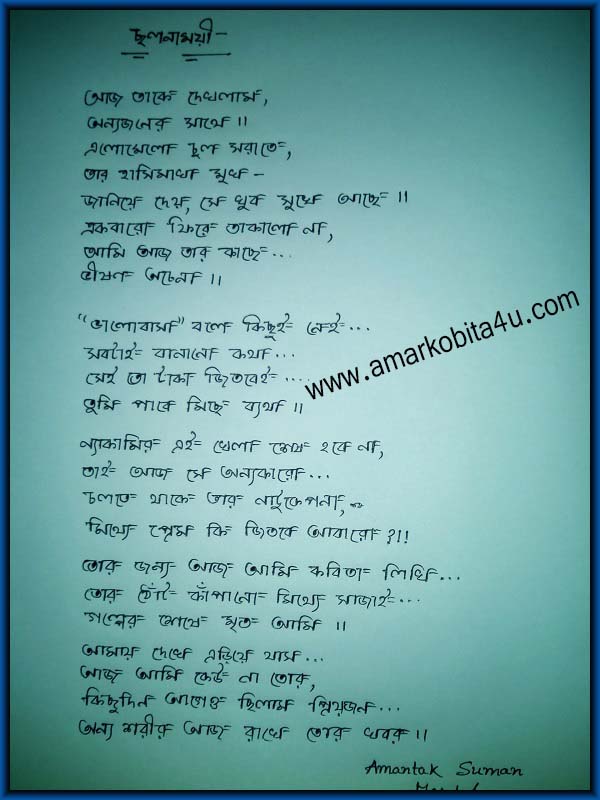 ছলনাময়ী-
আজ তাকে দেখলাম,
অন্যজনের সাথে ॥
এলোমেলো চুল সরাতে,
তার হাসিমাখা মুখ –
জানিয়ে দেয়, সে খুব সুখে আছে ॥
একবারো ফিরে তাকালো না,
আমি আজ তার কাছে...
ভীষণ অচেনা ॥
"ভালোবাসা" বলে কিছুই নেই...
সবটাই বানানো কথা...
সেই তো টাকা জিতবেই...
তুমি পাবে মিছে ব্যথা ॥
www.amarkobita4u.com
ন্যাকামির এই খেলা শেষ হবে না,
তাই আজ সে অন্যকারো...
চলতে থাকে তার নাটুকেপনা,
মিথ্যে প্রেম কি জিতবে আবারো ?!!
তোর জন্য আজ আমি কবিতা লিখি...
তোর ঠোঁট কাঁপানো মিথ্যে সাজাই...
গল্পের শেষে মৃত আমি ॥
আমায় দেখে এড়িয়ে যাস...
আজ আমি কেউ না তোর,
কিছুদিন আগেও ছিলাম প্রিয়জন...
অন্য শরীর আজ রাখে তোর খবর ॥
Amantak Suman